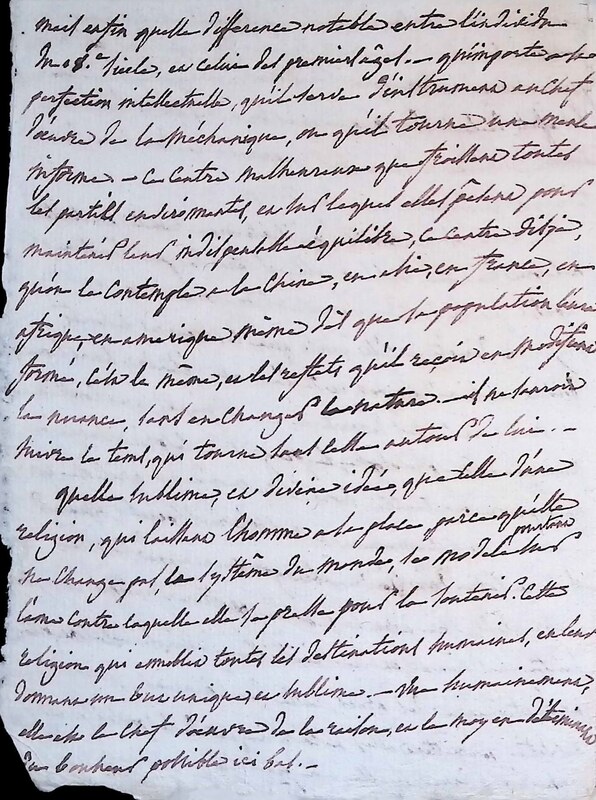 mais enfin quelle difference notable entre l'individu
du 18.e siecle, et celui des premiers âges. – qu'importe a la
perfection intellectuelle, qu'il serve d'instrument au chef
d'œuvre de la méchanique, ou qu'il tourne une meule
informe – ce centre malheureux que froissent toutes
les parties environantes, et sur lequel elles pèsent pour
maintenir leur indispensable équilibre, ce centre dis-je,
qu'on le contemple a la Chine, en asie, en france, en
afrique, en amerique même dès que la population l'aura
formé, c'est le même, et les reflets qu'il reçoit en modifient
la nuance, sans en changer la nature. – il ne sauroit
suivre le tems, qui tourne sans cesse autour de lui. –
quelle sublime, et divine idée, que celle d'une
religion, qui laissant l'homme a sa place, parce qu'elle
ne change pas, le système du monde, le modele sur
l'ame contre laquelle elle se presse pour la soutenir. Cette
religion qui ennoblit toutes les destinations humaines, en leur
donnant un but unique, et sublime. – vue humainement,
elle est le chef d'œuvre de la raison, et le moyen déterminé
du bonheur possible ici bas. –